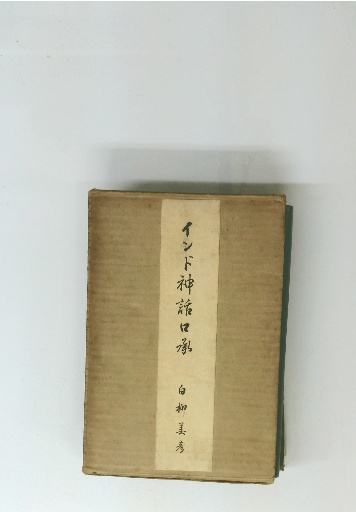 インド神話口承
白柳美彦